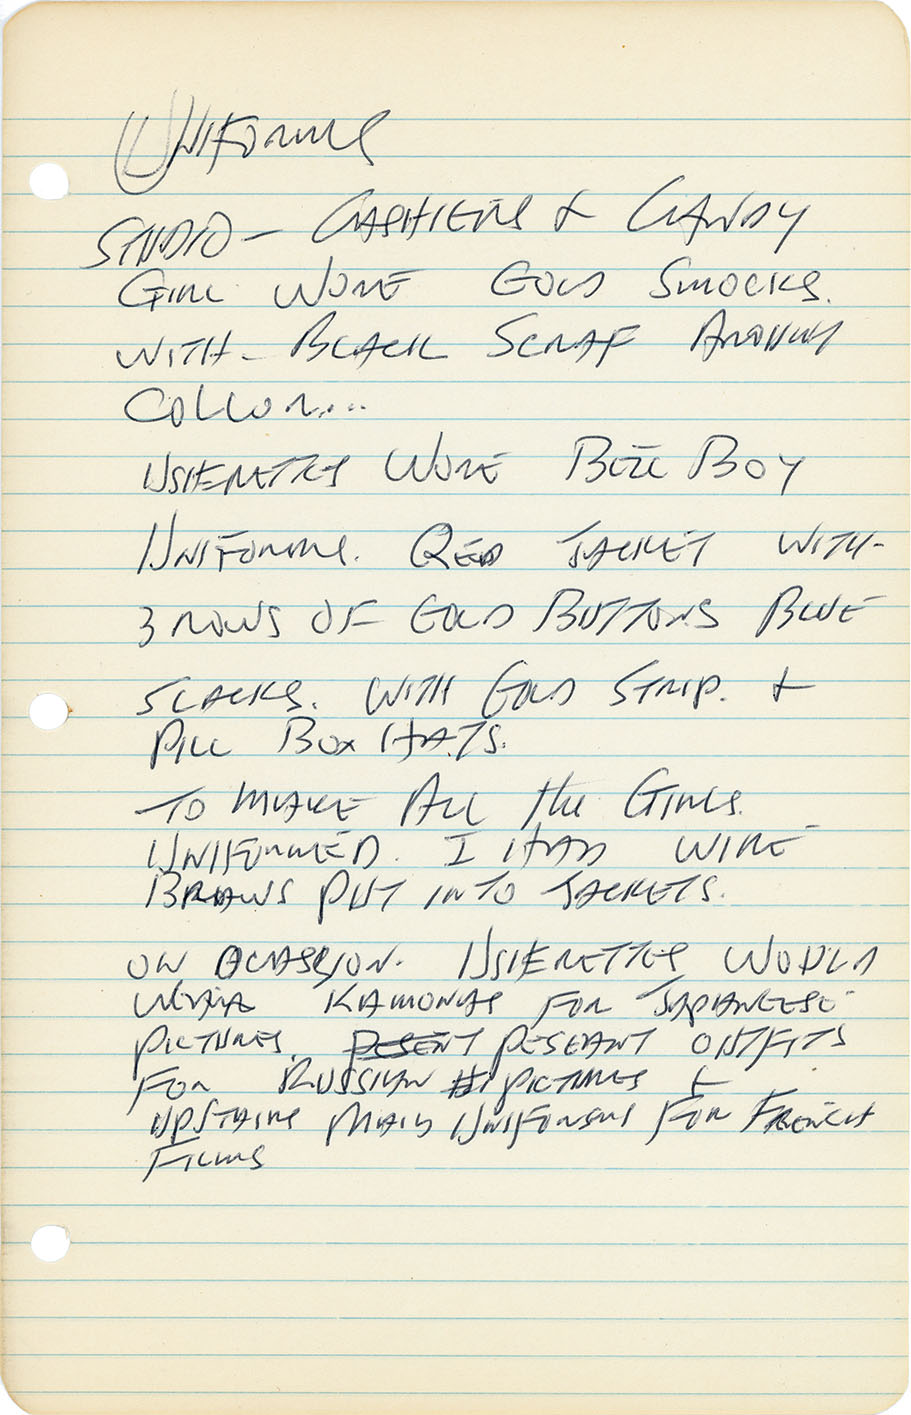 UNIFORMS
STUDIO - CASHIERS & CANDY
GIRL WORE GOLD SMOCKS.
WITH - BLACK SCRAF AROUND
COLLOR...
USHERETTES WORE BELL BOY
UNIFORMS. RED JACKET WITH-
3 ROWS OF GOLD BUTTONS BLUE
SLACKS. WITH GOLD STRIP. &
PILL BOX HATS.
TO MAKE ALL the GIRLS.
UNIFORMED. I HAD WIRE
BRAWS PUT INTO JACKETS.
ON OCASSION. USHERETTES WOULD
WEAR KAMONAS FOR JAPANEESE
PICTURES. PESENT PESEANT OUTFITS
FOR RUSSIAN PICTURES &
UPSTAIRS MAID UNIFORMS FOR FRENCH
FILMS